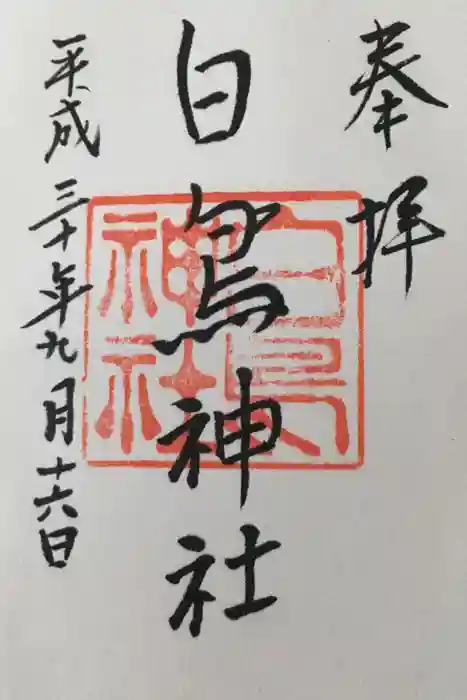 奉拝
白鳥神社
平成三十年九月十六日
白鳥
神社